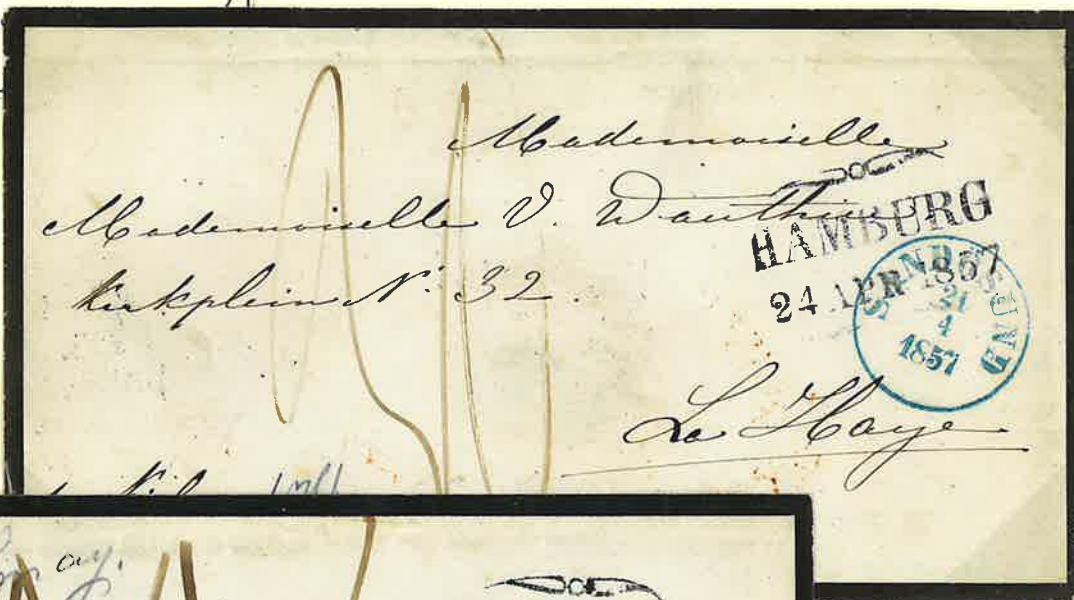 Mademoiselle
Mademoiselle V. Wauthier
Kerkplein N: 32.
HAMBURG
24 APR 1857
21
4
1857
La Haye